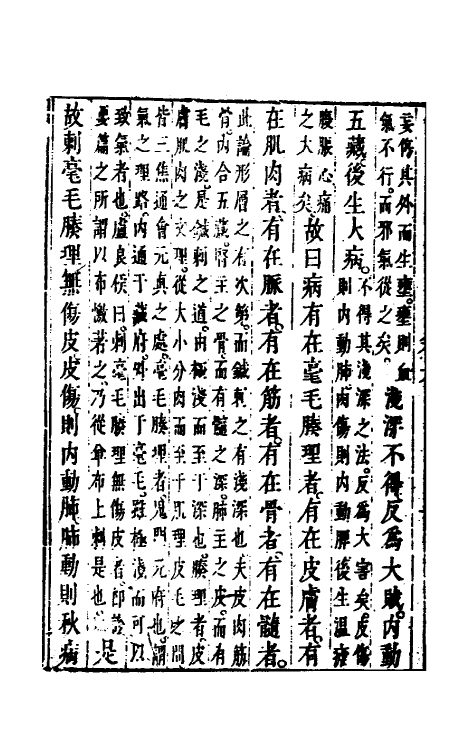 妄傷其外而生壅。壅則血
氣不行。而邪氣從之矣。
淺深不得。反爲大賊。內動
五藏。後生大病。
不得其淺深之法。反爲大害矣。皮傷
則內動肺。肉傷則內動脾。後生溫瘧
腹脹心痛
之大病矣。
故曰病有在毫毛腠理者。有在皮膚者。有
在肌肉者。有在脈者。有在筋者。有在骨者。有在髓者。
此論形層之有次第。而鍼刺之有淺深也。夫皮肉筋
骨。內合五藏。腎主之骨。而有髓之深。肺主之皮。而有
毛之淺。是鍼刺之道。由極淺而至于深也。腠理者。皮
膚肌肉之文理。從大小分肉而至于肌理皮毛之間
皆三焦通會元真之處。毫毛腠理者。鬼門元府也。謂
氣之理路。內通于藏府。外出于毫毛。雖極淺而可以
致氣者也。盧良侯曰。刺毫毛腠理無傷皮者。即診
要篇之所謂以布憿著之。乃從單布上刺是也。
是
故刺毫毛腠理無傷皮。皮傷則內動肺。肺動則秋病